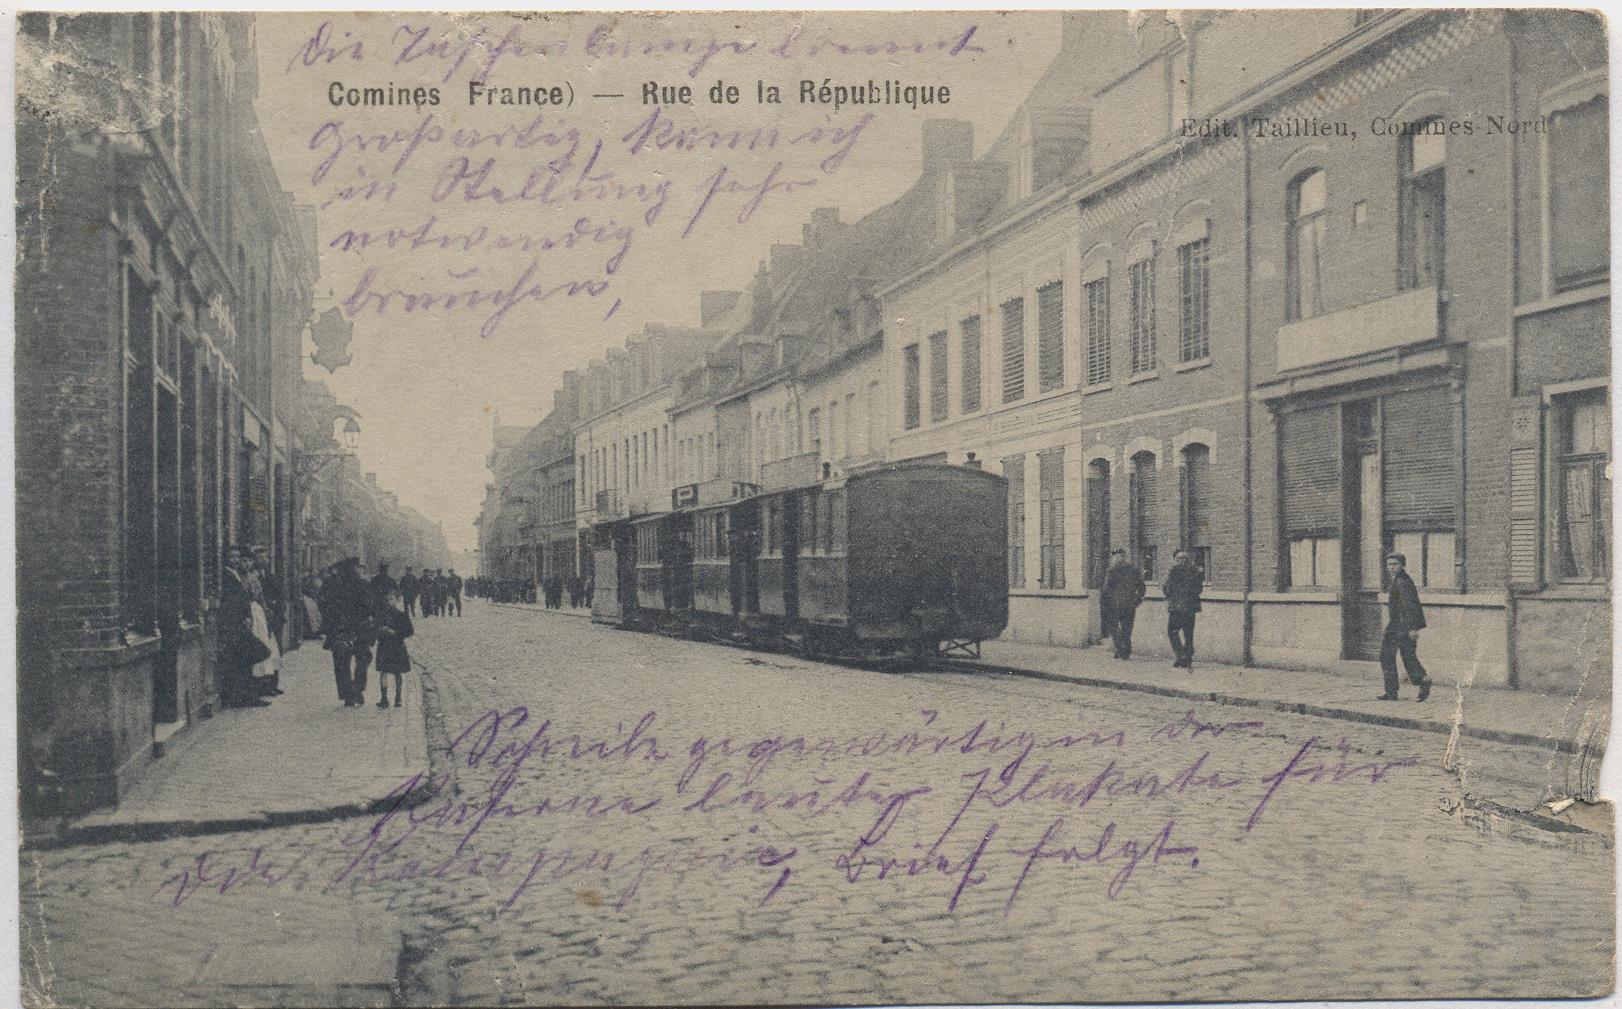 Die Taschenlampe brennt
Comines France) — Rue de la République
Edit. Taillieu, Comines-Nord
großartig, kann ich
in Stellung sehr
notwendig
brauchen,
P
Schreibe gegenwärtig in der
Kaserne lauter Plakate für
die Kompagnie, Brief folgt.